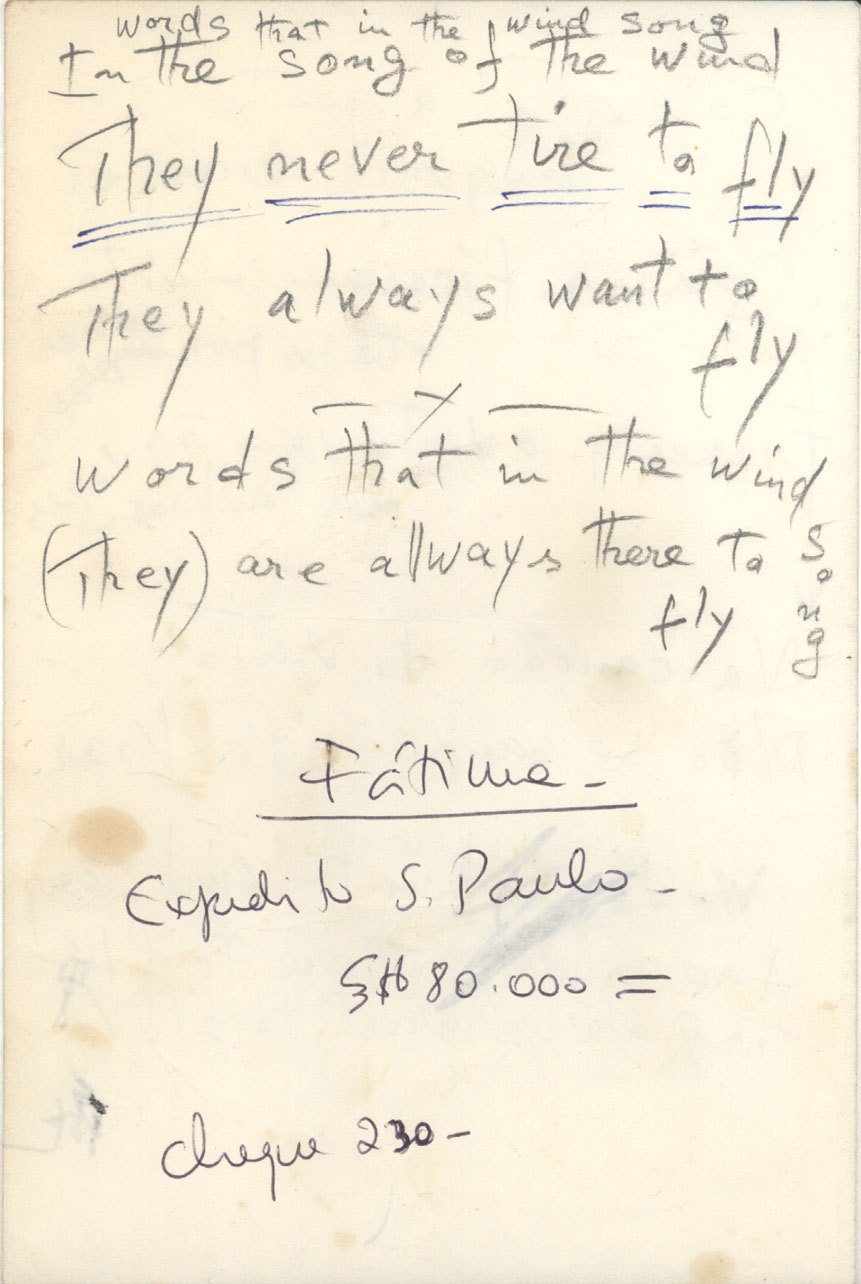 words that in the wind song
In the song of the wind
They never tire to fly
They always want to
fly
— x —
words that in the wind
(They) are allways there to song
fly
Fátima -
Expedito S. Paulo -
80.000 =
cheque 230 -